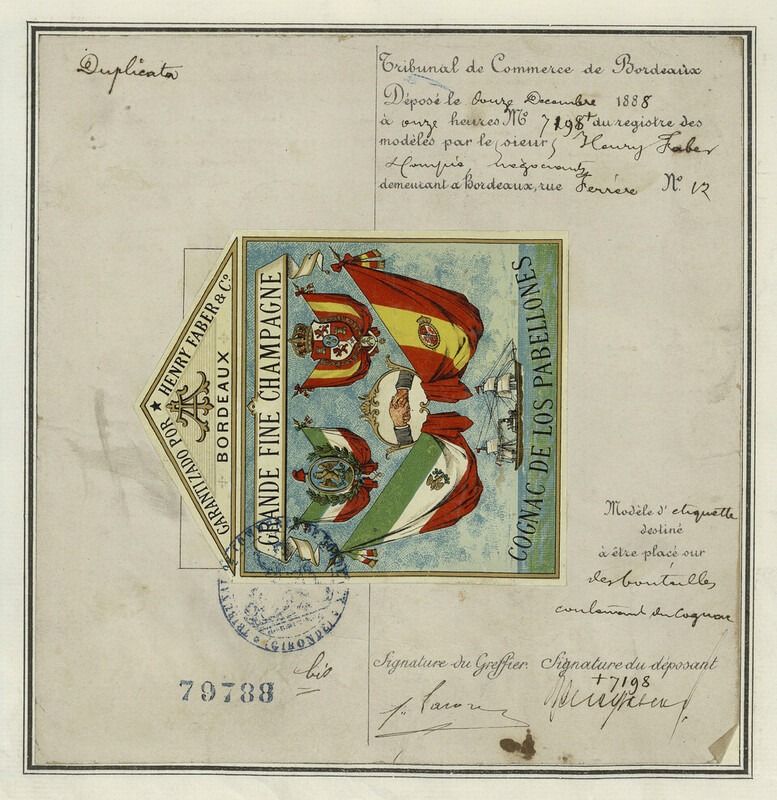 Duplicata
Tribunal de Commerce de Bordeaux
Déposé le onze Decembre 1888
à onze heures Nº 7198 du registre des
modèles par le sieur Henry Faber
& Compie, négociants
demeurant à Bordeaux, rue Ferrère Nº 12
GARANTIZADO POR ★ HENRY FABER & Cº
BORDEAUX
GRANDE FINE CHAMPAGNE
COGNAC DE LOS PABELLONES
Modèle d'etiquette
destiné
à être placé sur
des bouteilles
contenant du Cognac
TRIBUNAL DE COMMERCE DE BORDEAUX (GIRONDE)
79788
bis
Signature du Greffier.
Signature du déposant
+7198